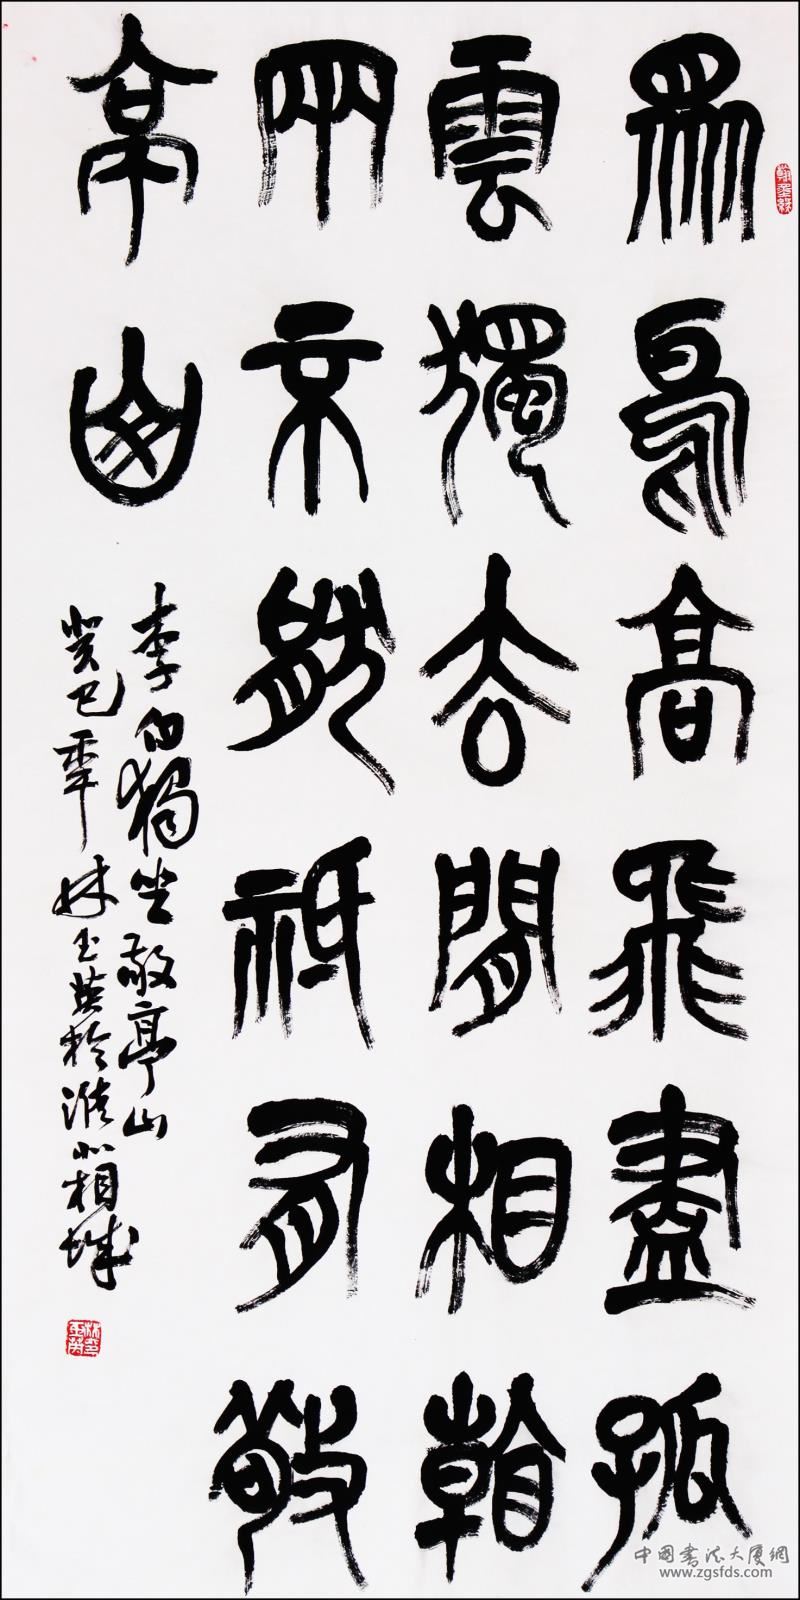 眾鳥高飛盡孤
雲獨去閒相看
兩不厭祇有敬
亭山
李白獨坐敬亭山
癸巳年林玉英於淮北相城
翰墨緣
中國書法大廈網
www.zgsfds.com